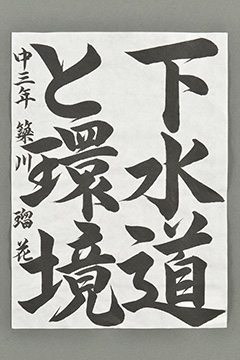 下水道
と環境
中三年 築川 瑠花